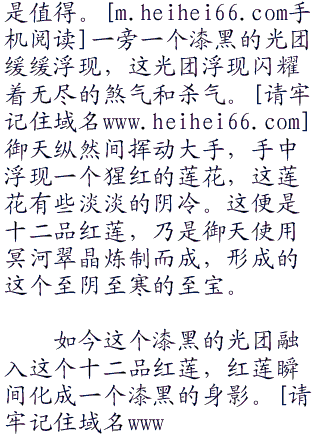 是值得。[m.heihei66.com手
机阅读]一旁一个漆黑的光团
缓缓浮现，这光团浮现闪耀
着无尽的煞气和杀气。[请牢
记住域名www.heihei66.com]
御天纵然间挥动大手，手中
浮现一个猩红的莲花，这莲
花有些淡淡的阴冷。这便是
十二品红莲，乃是御天使用
冥河翠晶炼制而成，形成的
这个至阴至寒的至宝。
如今这个漆黑的光团融
入这个十二品红莲，红莲瞬
间化成一个漆黑的身影。[请
牢记住域名www